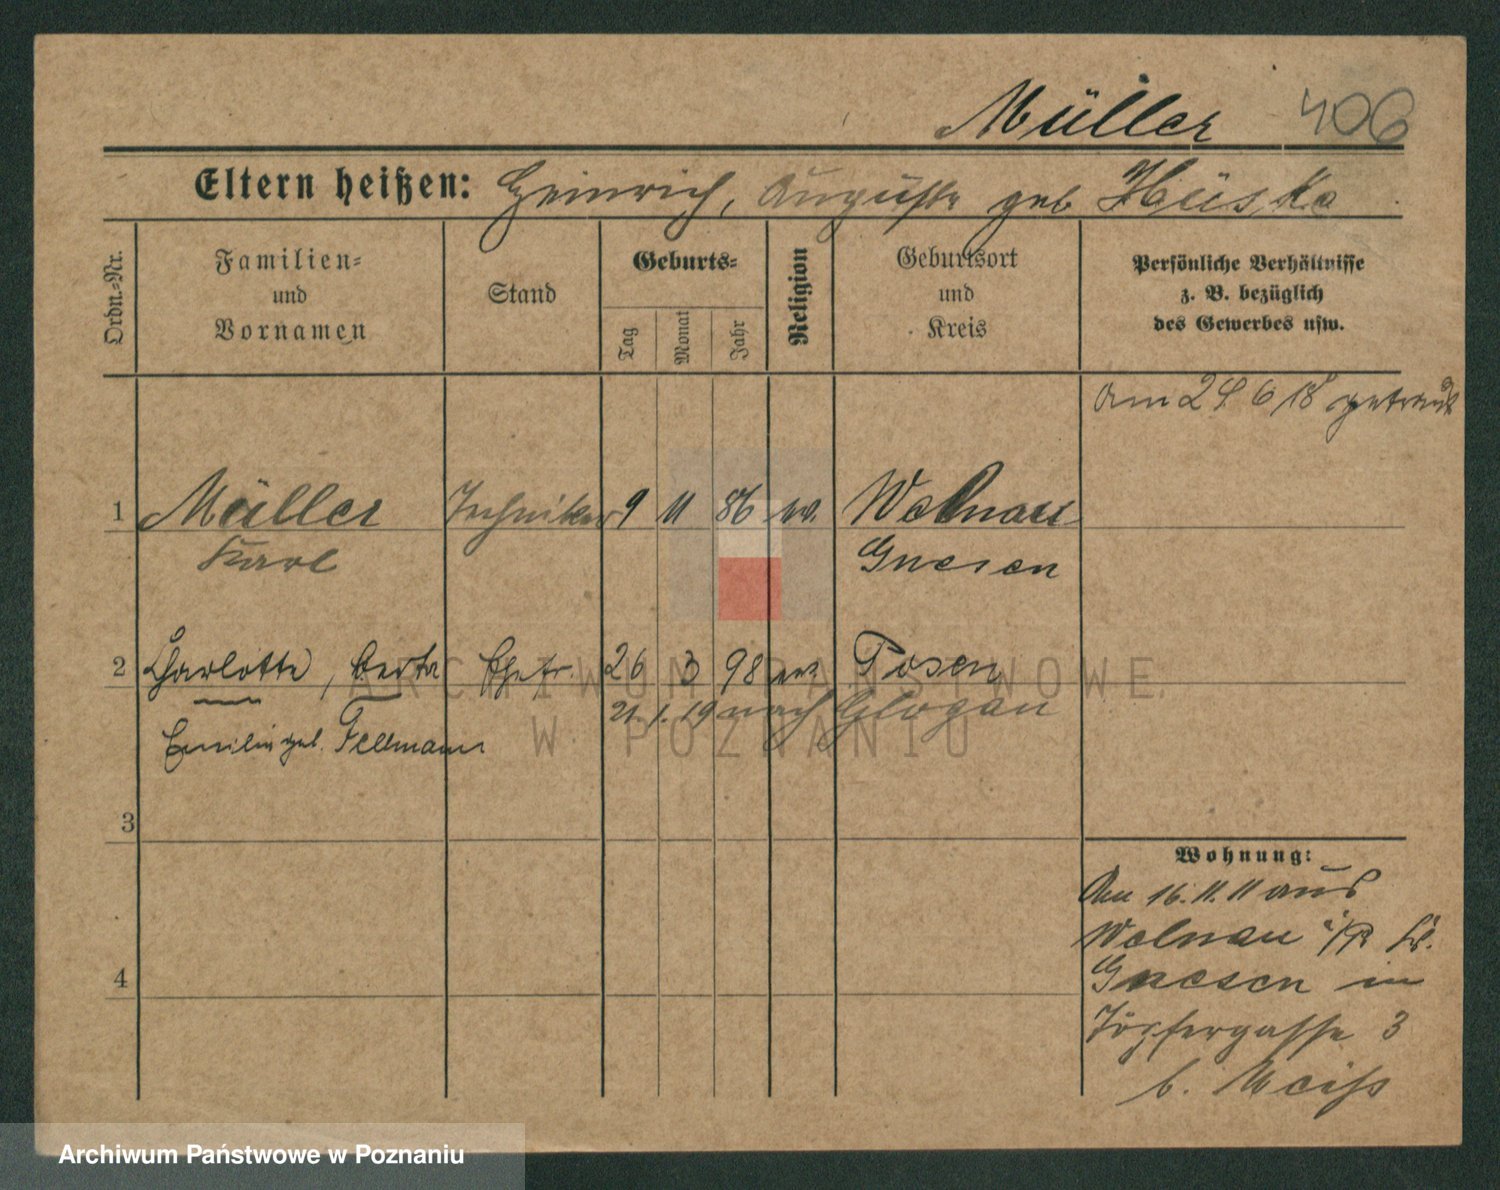 Müller 406
Eltern heißen: Heinrich, Auguste geb Hüske
Ordn.-Nr.
Familien-
und
Vornamen
Stand
Geburts-
Tag
Monat
Jahr
Religion
Geburtsort
und
Kreis
Persönliche Verhältnisse
z. B. bezüglich
des Gewerbes usw.
Am 24 6 18 getraut
1 Müller Techniker 9 11 86 ev. Welnau
Karl Gnesen
2 Charlotte, Berta Ehefr. 26 3 98 ev Posen
21. 1. 19 nach Glogau
Emilie geb. Fellmann
3
4
Wohnung:
Am 16. 11. 11 aus
Welnau i/P Kr.
Gnesen in
Töpfergasse 3
b. Weiß
ARCHIWUM PAŃSTWOWE
W POZNANIU
Archiwum Państwowe w Poznaniu